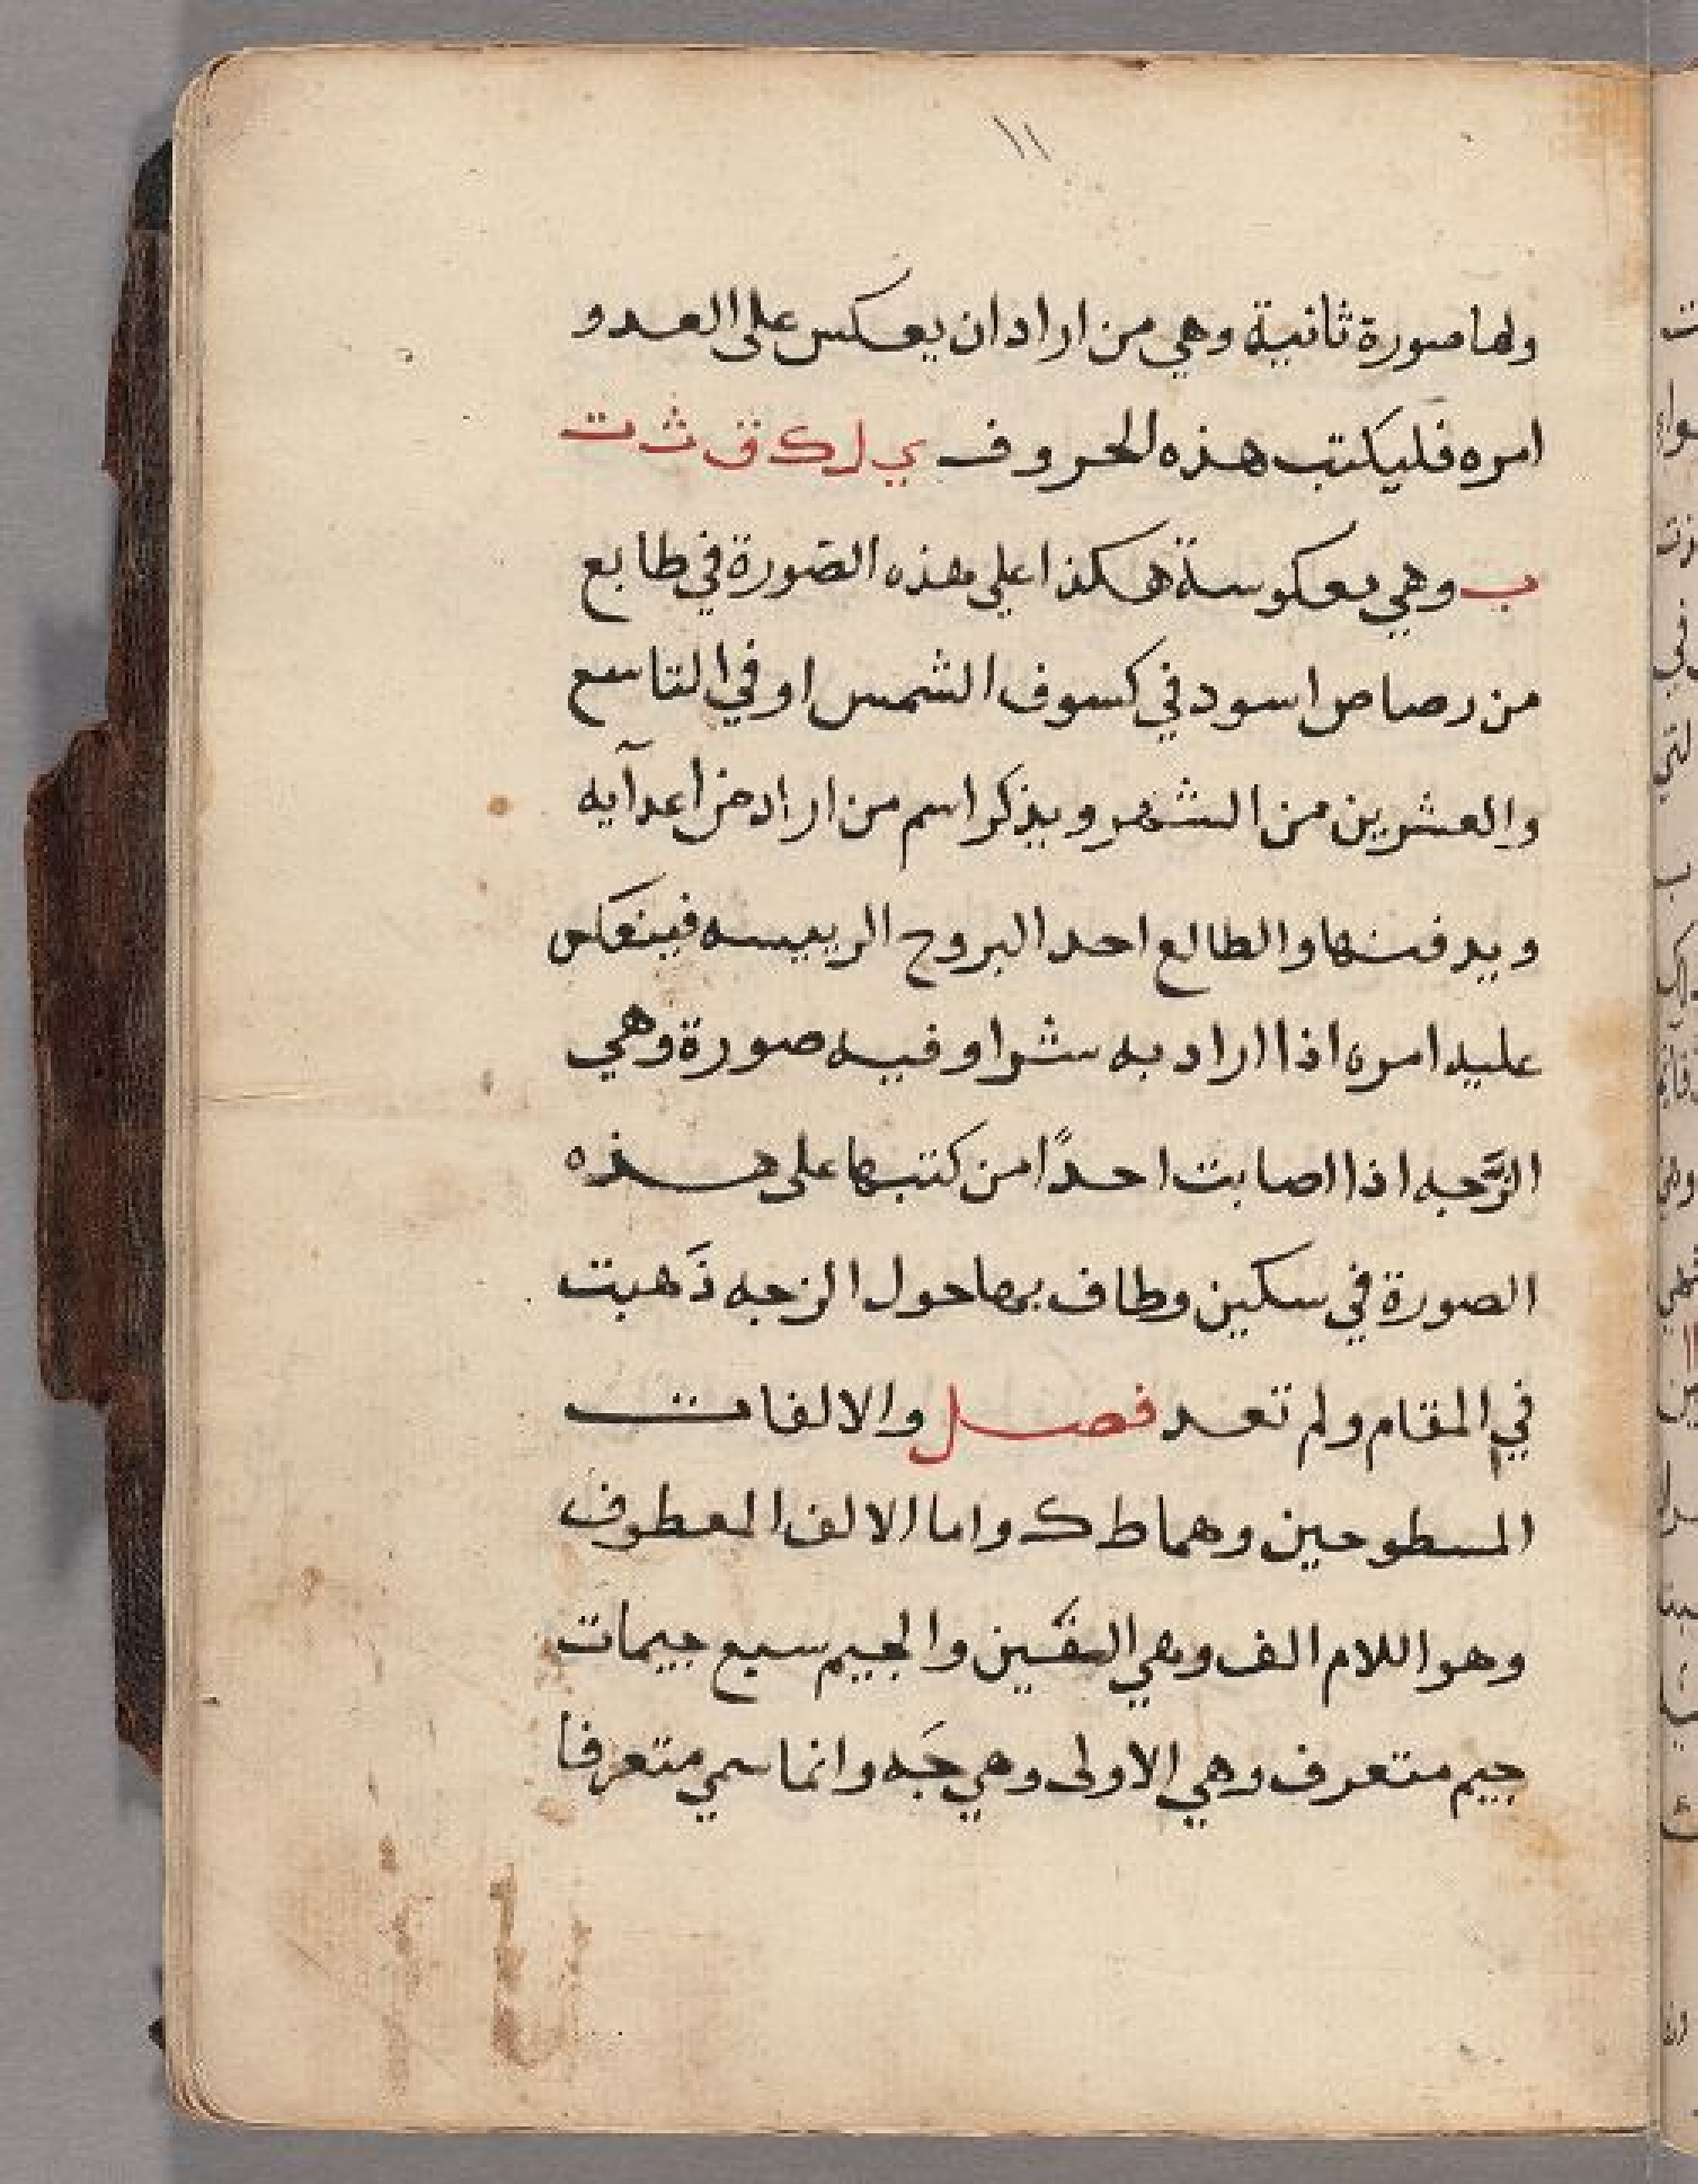 ١١
ولها صورة ثانية وهي من اراد ان يعكس على العدو
امره فليكتب هذه الحروف ي ل ك ق ث ت
ب وهي معكوسة هكذا على هذه الصورة في طابع
من رصاص اسود في كسوف الشمس او في التاسع
والعشرين من الشهر ويذكر اسم من اراد من أعدآيه
ويدفنها والطالع احد البروج الرييسه فينعكس
عليه امره اذا اراد به شرا وفيه صورة وهي
الزَّحِه اذا اصابت احدًا من كتبها على هذه
الصورة في سكين وطاف بها حول الزحه ذَهبت
في المقام ولم تعد فصل والالفات
المسطوحين وهما ط ك واما الالف المعطوف
وهو اللام الف وهي والجيم سبع جيمات
جيم متعرف وهي الاولى وهي جَه وانما سمي متعرفا